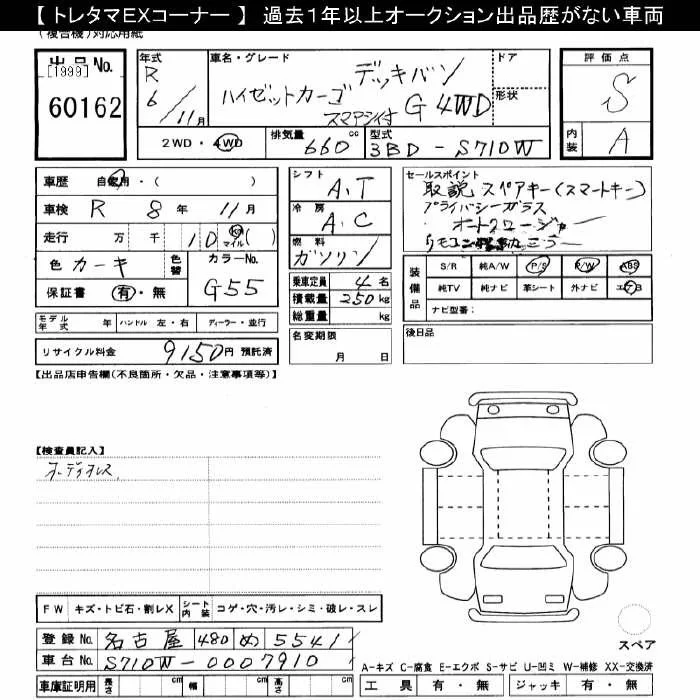 【 トレタマEXコーナー 】 過去１年以上オークション出品歴がない車両
(複合機)対応用紙
出品No.
[1999]
60162
年式
R
6/11月
車名・グレード
デッキバン
ハイゼットカーゴ
スマアシ付 G 4WD
ドア
形状
評価点
S
内装
A
2WD・4WD
排気量
660
cc
型式
3BD-S710W
車歴 自家用・( )
車検 R 8年 11月
走行 万 千 10 Km マイル ( )
色 カーキ
色替
カラーNo.
G55
保証書 有・無
シフト
A.T
冷房
A.C
燃料
ガソリン
乗車定員 4名
積載量 250kg
総重量 kg
名変期限
月 日
セールスポイント
取説 スペアキー(スマートキー)
プライバシーガラス
装備品
S/R 純A/W P/S P/W ABS
純TV 純ナビ 革シート 外ナビ エアB
ナビ型番:
後日品
モデル年式 年 ハンドル 左・右 ディーラー・並行
リサイクル料金 9150円 預託済
【出品店申告欄(不良箇所・欠品・注意事項等)】
【検査員記入】
オーディオレス
FW キズ・トビ石・割レX シート内装 コゲ・穴・汚レ・シミ・破レ・スレ
登録No. 名古屋 480 め 5541
車台No. S710W-0007910
車庫証明用 長さ cm 幅 cm 高さ cm
スペア
A-キズ C-腐食 E-エクボ S-サビ U-凹ミ W-補修 XX-交換済
工具 有・無 ジャッキ 有・無